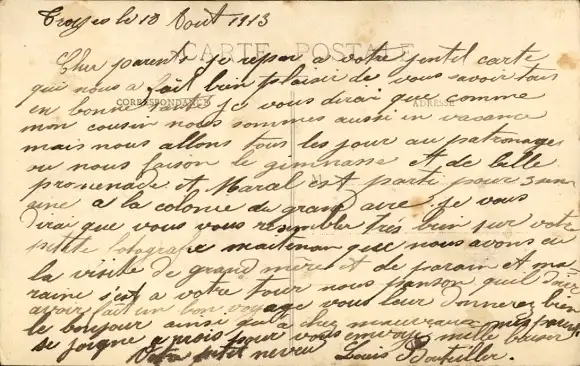 Troyes le 18 Aout 1913
CARTE POSTALE
Cher parents je repon a votre jentil carte
qui nous a fait bien plaisir de vous savoir tous
en bonne santé je vous dirai que comme
CORRESPONDANCE
ADRESSE
mon cousin nous sommes aussi en vacance
mais nous allons tous les jour au patronage
ou nous faison le gimnasse et de belle
promenade et Marcel est parti pour 3 sem
aine a la colonie de grand aire je vous
dirai que vous vous resembler très bien sur votre
petite fotografie maintenan que nous avons eu
la visite de grand mère et de parain et ma
raine s'est a votre tour nous panson qu'il doive
avoir fait un bon voyage vous leur donnerez bien
le bonjour ainsi qu'a chez mes parents
se joigne a mois pour vous envoyer mille baiser
Votre petit neveu Louis